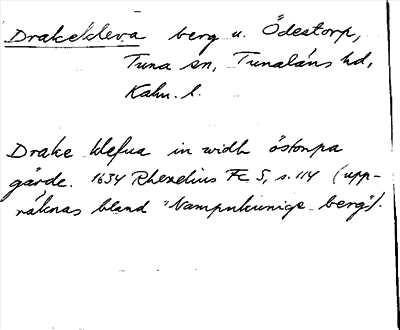 Drakekleva berg u. Ödestorp,
Tuna sn, Tunaläns hd,
Kalm. l.
Drake klefua in widh östorpa
gärde. 1634 Rhezelius Fc 5, s. 114 (upp-
räknas bland "Nampnkunige berg").